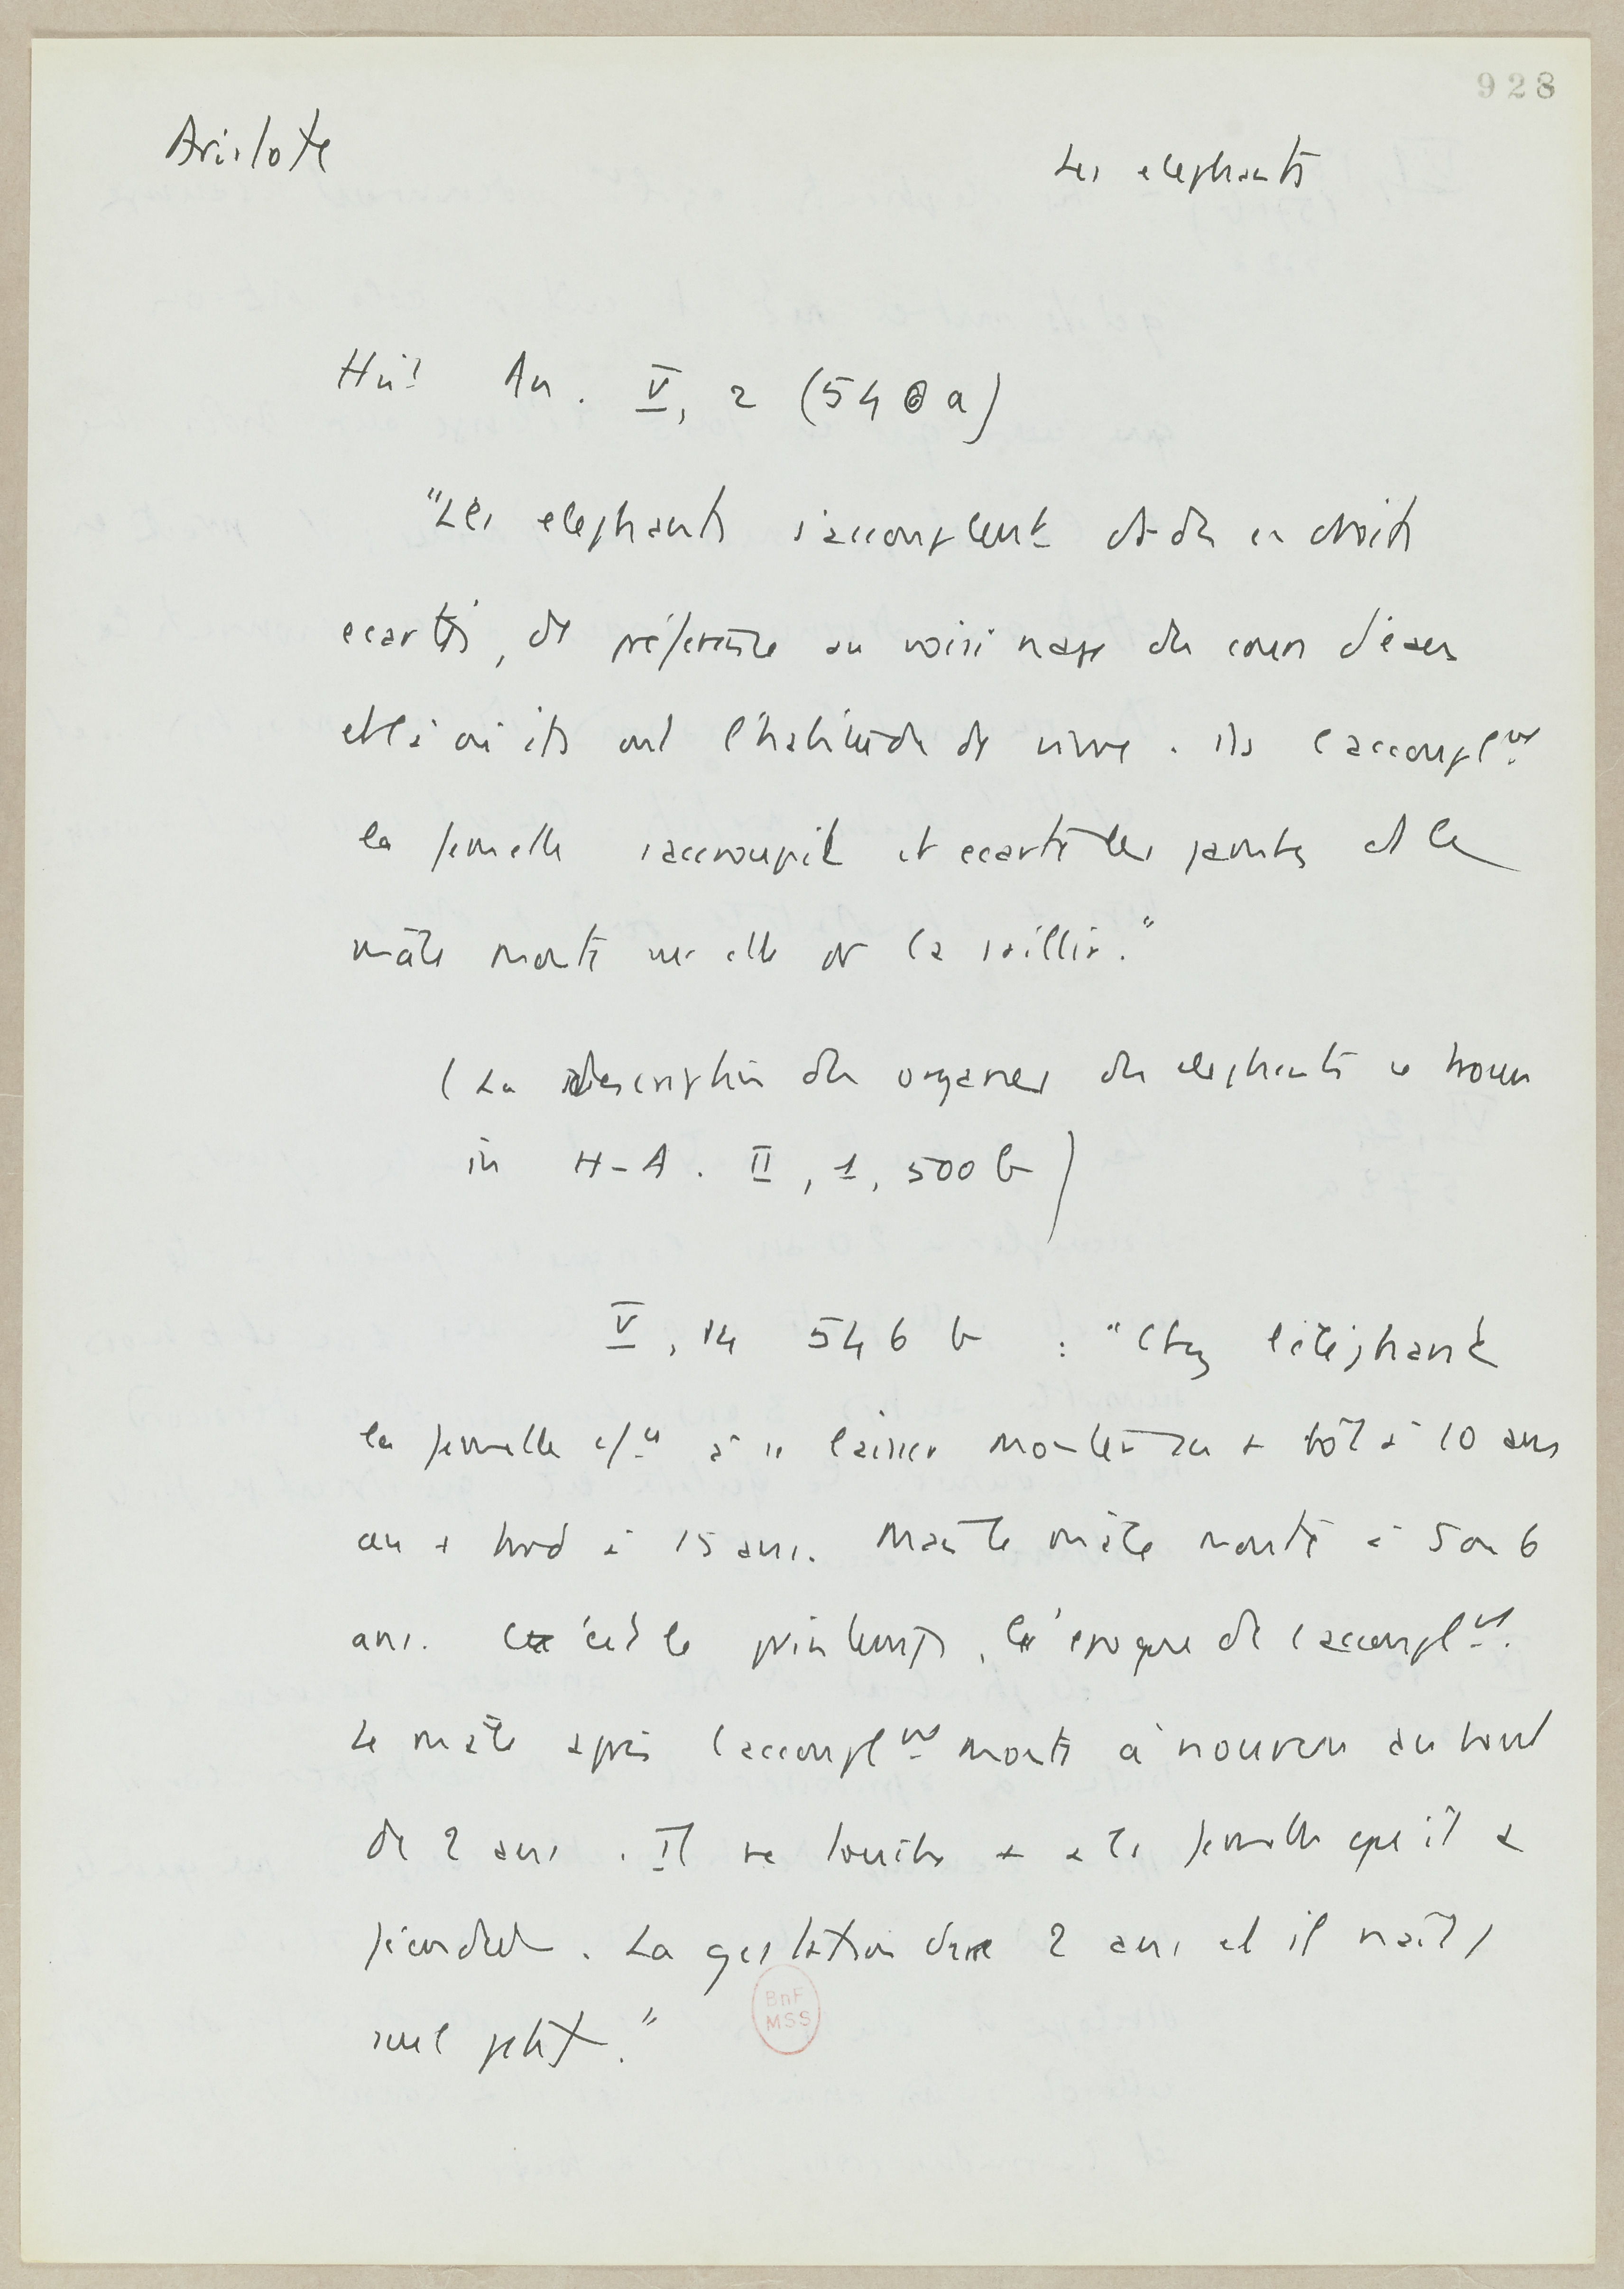 928
Aristote
Les elephants
Hist An. V, 2 (540 a)
"Les elephants s'accouplent ds des endroits
ecartés, de préférence au voisinage des cours d'eaux
et là où ils ont l'habitude de vivre. Ils s'accouplnt
la femelle s'accroupit et ecarte les jambes et le
mâle monte sur elle pr la saillir."
(La description des organes des elephants se trouve
in H-A. II, 1, 500 b)
V, 14 546 b : "Chez l'éléphant
la femelle à se laisser monter au + tôt à 10 ans
au + tard à 15 ans. Mais le mâle monte à 5 ou 6
ans. C'est le printemps, l'époque de l'accouplnt.
Le mâle après l'accouplnt monte à nouveau au bout
de 2 ans. Il ne touche + la femelle qu'il a
fécondée. La gestation dure 2 ans et il naît 1
seul petit."
BnF
MSS